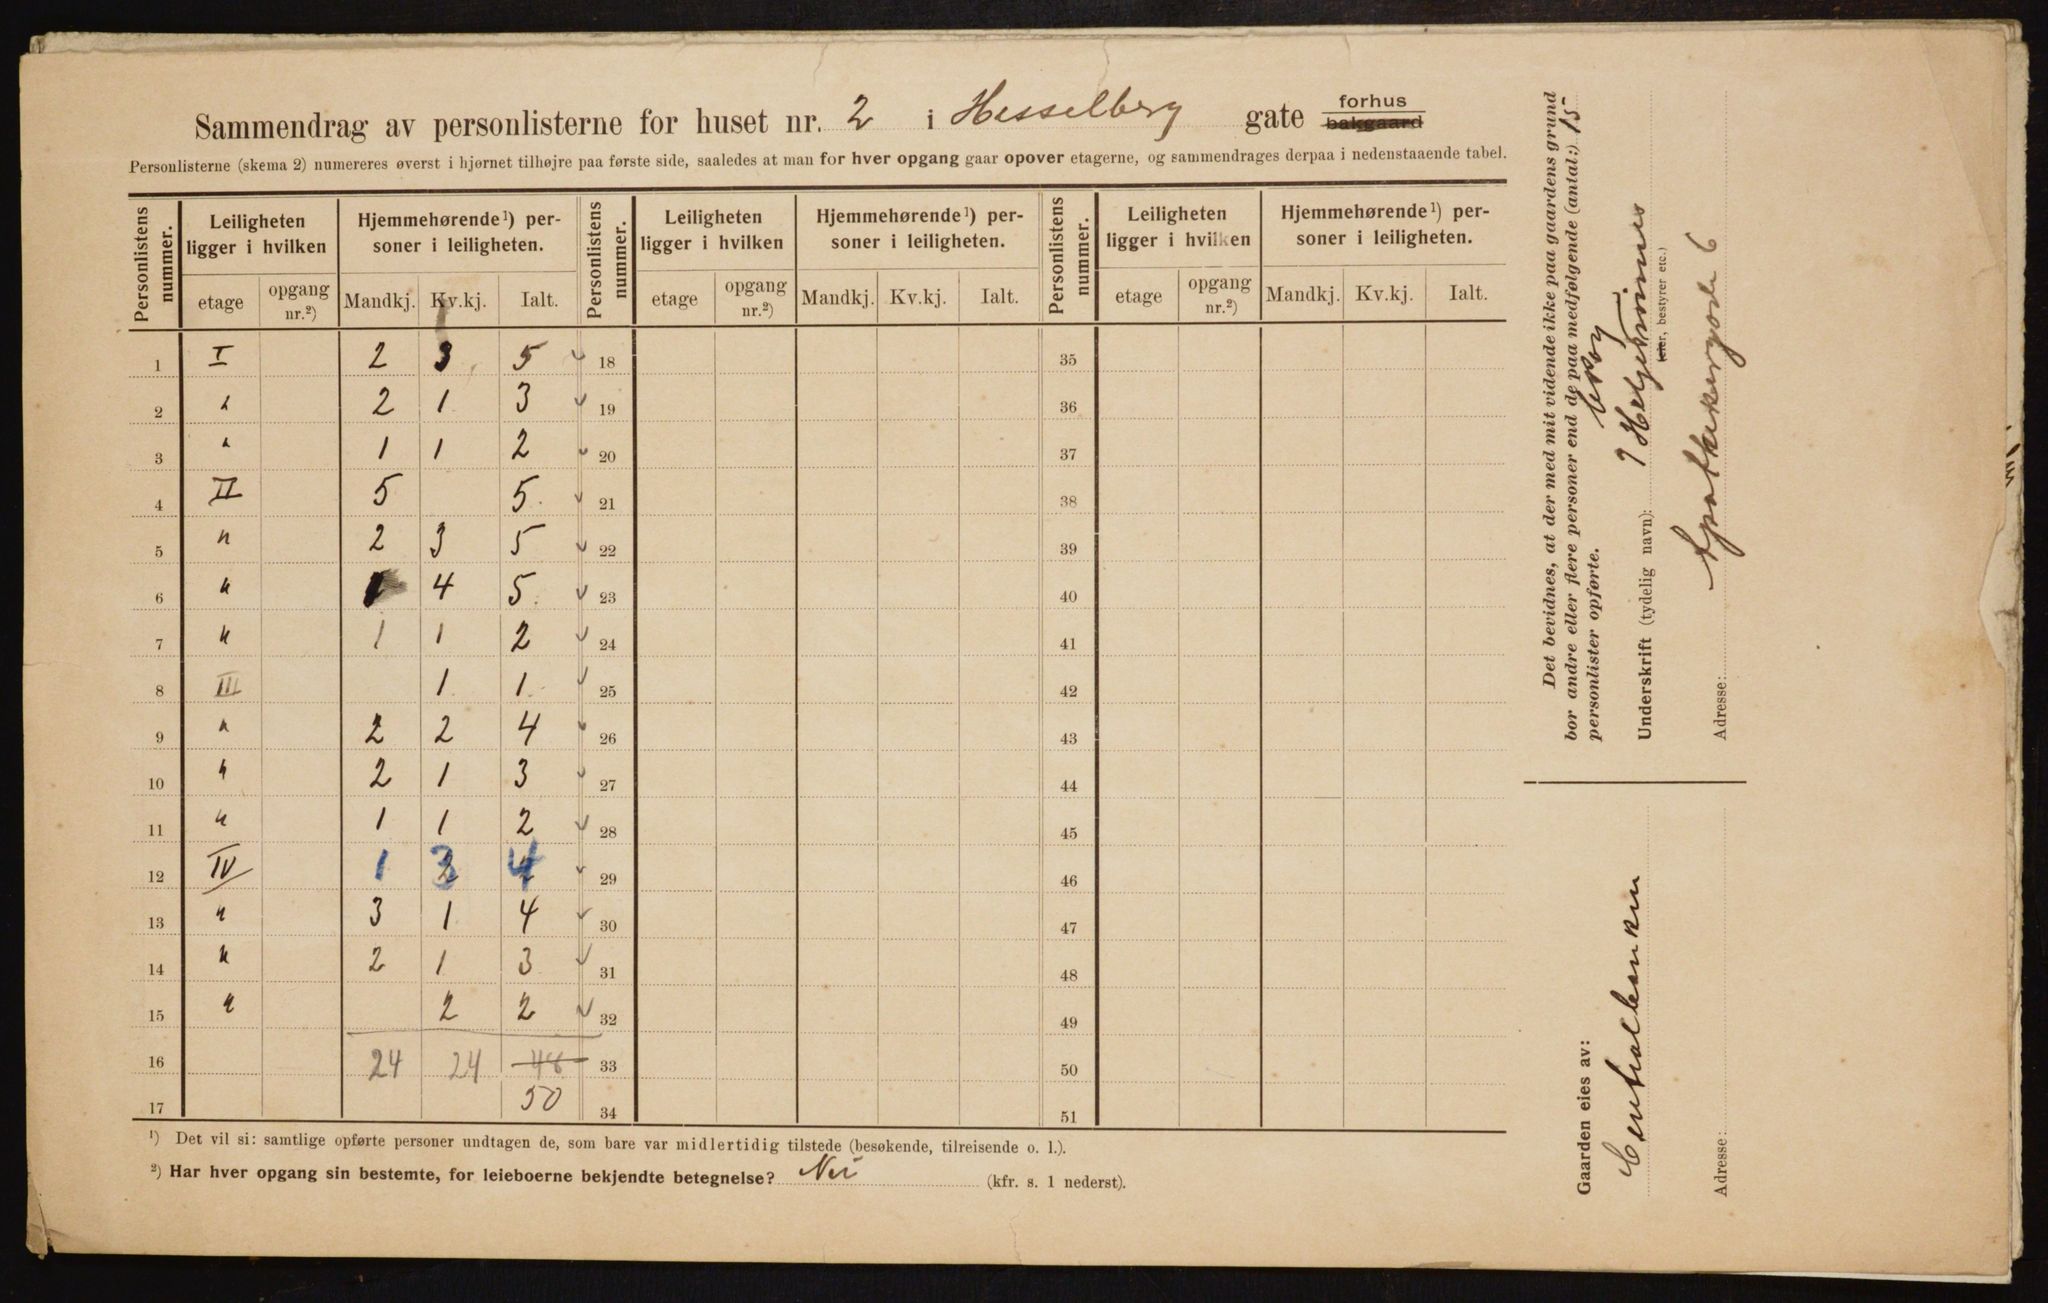 Sammendrag av personlisterne for huset nr. 2 i Hesselberg gate forhus bakgaard
Personlisterne (skema 2) numereres øverst i hjørnet tilhøjre paa første side, saaledes at man for hver opgang gaar opover etagerne, og sammendrages derpaa i nedenstaaende tabel.
Personlistens nummer. Leiligheten ligger i hvilken Hjemmehørende ¹) personer i leiligheten. Personlistens nummer. Leiligheten ligger i hvilken Hjemmehørende ¹) personer i leiligheten. Personlistens nummer. Leiligheten ligger i hvilken Hjemmehørende ¹) personer i leiligheten.
etage opgang nr.²) Mandkj. Kv.kj. Ialt. etage opgang nr.²) Mandkj. Kv.kj. Ialt. etage opgang nr.²) Mandkj. Kv.kj. Ialt.
1 I 2 3 5 18 35
2 " 2 1 3 19 36
3 " 1 1 2 20 37
4 II 5 5 21 38
5 " 2 3 5 22 39
6 " 1 4 5 23 40
7 " 1 1 2 24 41
8 III 1 1 25 42
9 " 2 2 4 26 43
10 " 2 1 3 27 44
11 " 1 1 2 28 45
12 IV 1 3 4 29 46
13 " 3 1 4 30 47
14 " 2 1 3 31 48
15 " 2 2 32 49
16 24 24 48 33 50
17 50 34 51
¹) Det vil si: samtlige opførte personer undtagen de, som bare var midlertidig tilstede (besøkende, tilreisende o. l.).
²) Har hver opgang sin bestemte, for leieboerne bekjendte betegnelse? Nei (kfr. s. 1 nederst).
Det bevidnes, at der med mit vidende ikke paa gaardens grund
bor andre eller flere personer end de paa medfølgende (antal:) 15
personlister opførte.
Underskrift (tydelig navn):
eier, bestyrer etc.)
Adresse: 6
Gaarden eies av:
Centralbanken
Adresse: